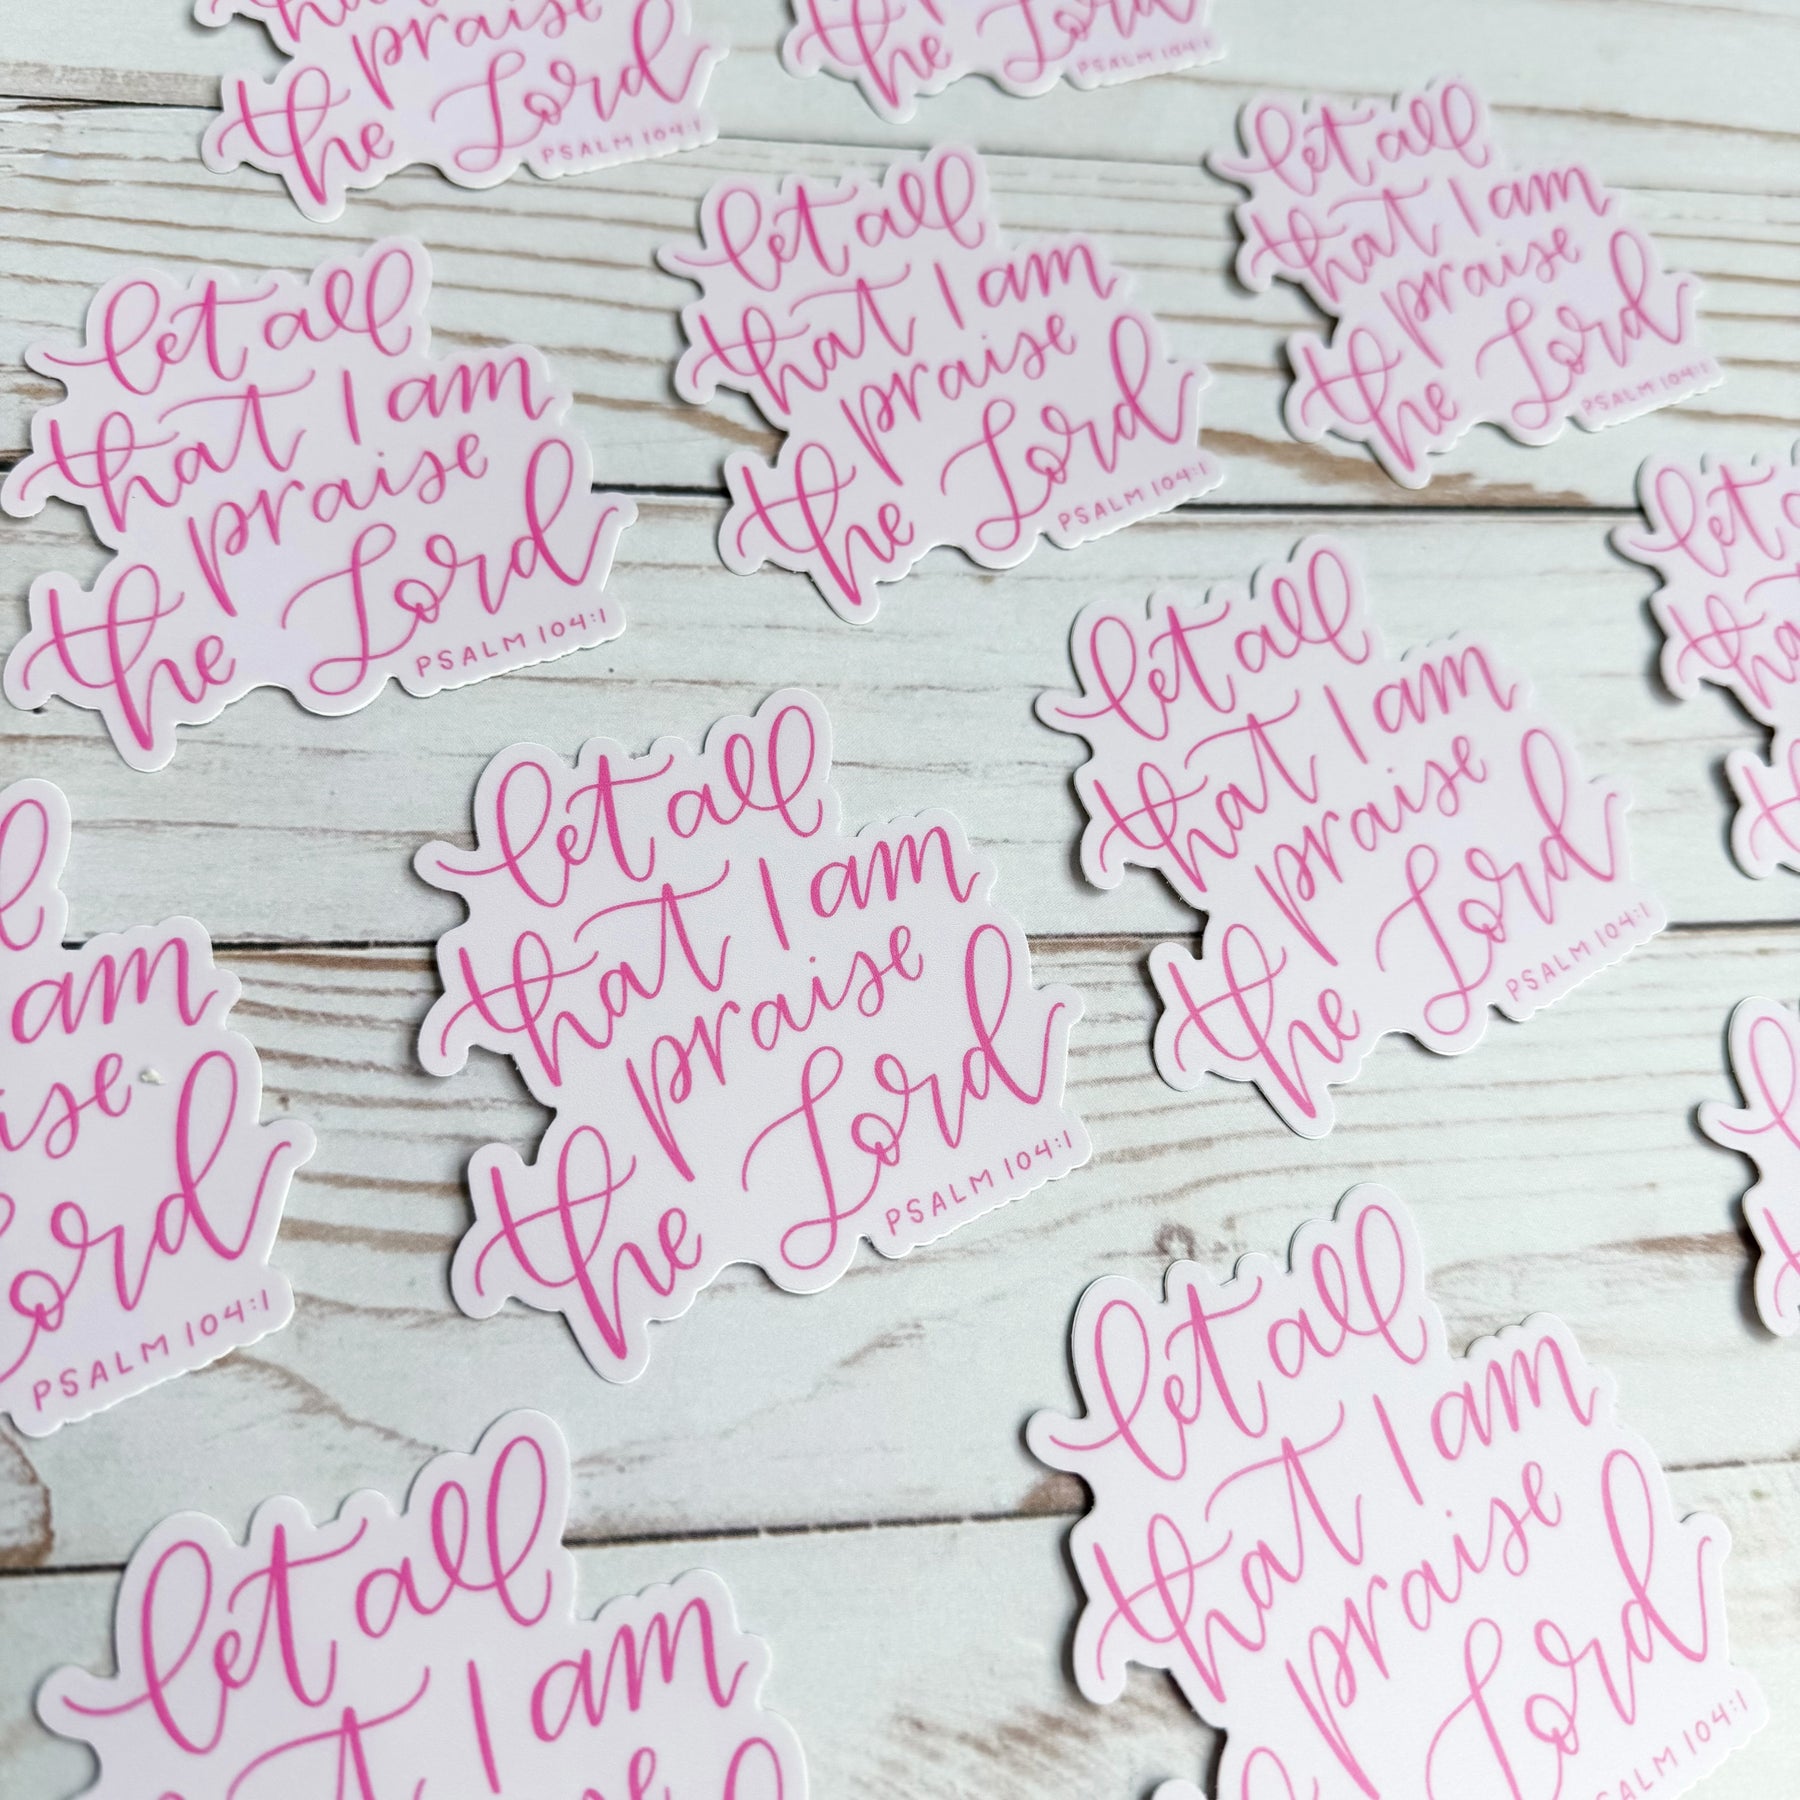 praise
the Lord
PSALM 104:1
the Lord
PSALM 104:1
let all
that I am
praise
the Lord
PSALM 104:1
let all
that I am
praise
the Lord
PSALM 104:1
let all
that I am
praise
the Lord
PSALM 104:1
let
let all
that I am
praise
the Lord
PSALM 104:1
let all
that I am
praise
the Lord
PSALM 104:1
am
PSALM 104:1
let all
that I am
praise
Lord
104:1
let all
I am